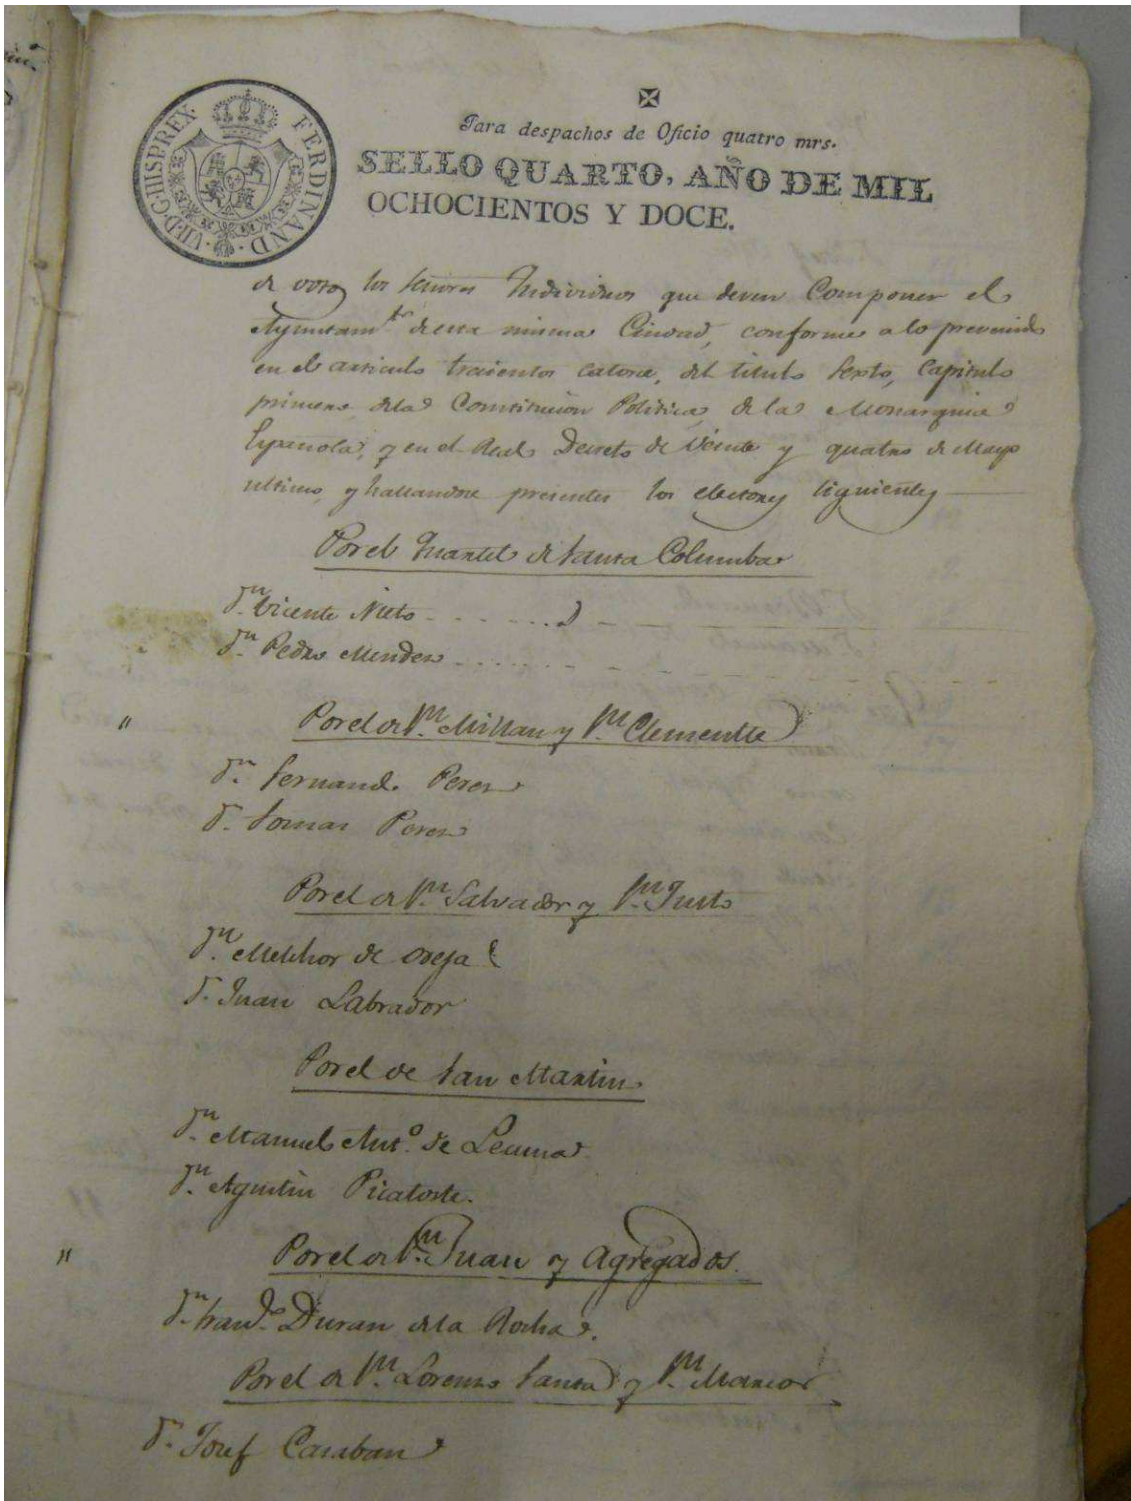 FERDINAND. VII. D. G. HISP. REX.
Para despachos de Oficio quatro mrs.
SELLO QUARTO, AÑO DE MIL
OCHOCIENTOS Y DOCE.
los Señores Individuos que deven Componer el
Ayuntamto. de esta misma Ciudad, conforme a lo prevenido
en el articulo trecientos catorce, del titulo Sexto, Capitulo
primero de la Constitucion Politica de la Monarquia
Española, y en el Real Decreto de Veinte y quatro de Mayo
ultimo, y hallandose presentes los electores siguientes
Por el Quartel de Santa Columba
Dn. Vicente Nieto
Dn. Pedro Mendez
Por el de Sn. Millan y Sn. Clementte
Dn. Fernando Perez
Dn. Tomas Perez
Por el de Sn. Salvador y Sn. Justo
Dn. Melchor de Oreja
Dn. Juan Labrador
Por el de San Martin
Dn. Manuel Anto. de Lecuna
Dn. Agustin Picatoste.
Por el de Sn. Juan y Agregados.
Dn. Franco. Duran de la Rocha.
Por el de Sn. Lorenzo Santa y Sn. Marcos
Dn. Josef Caraban